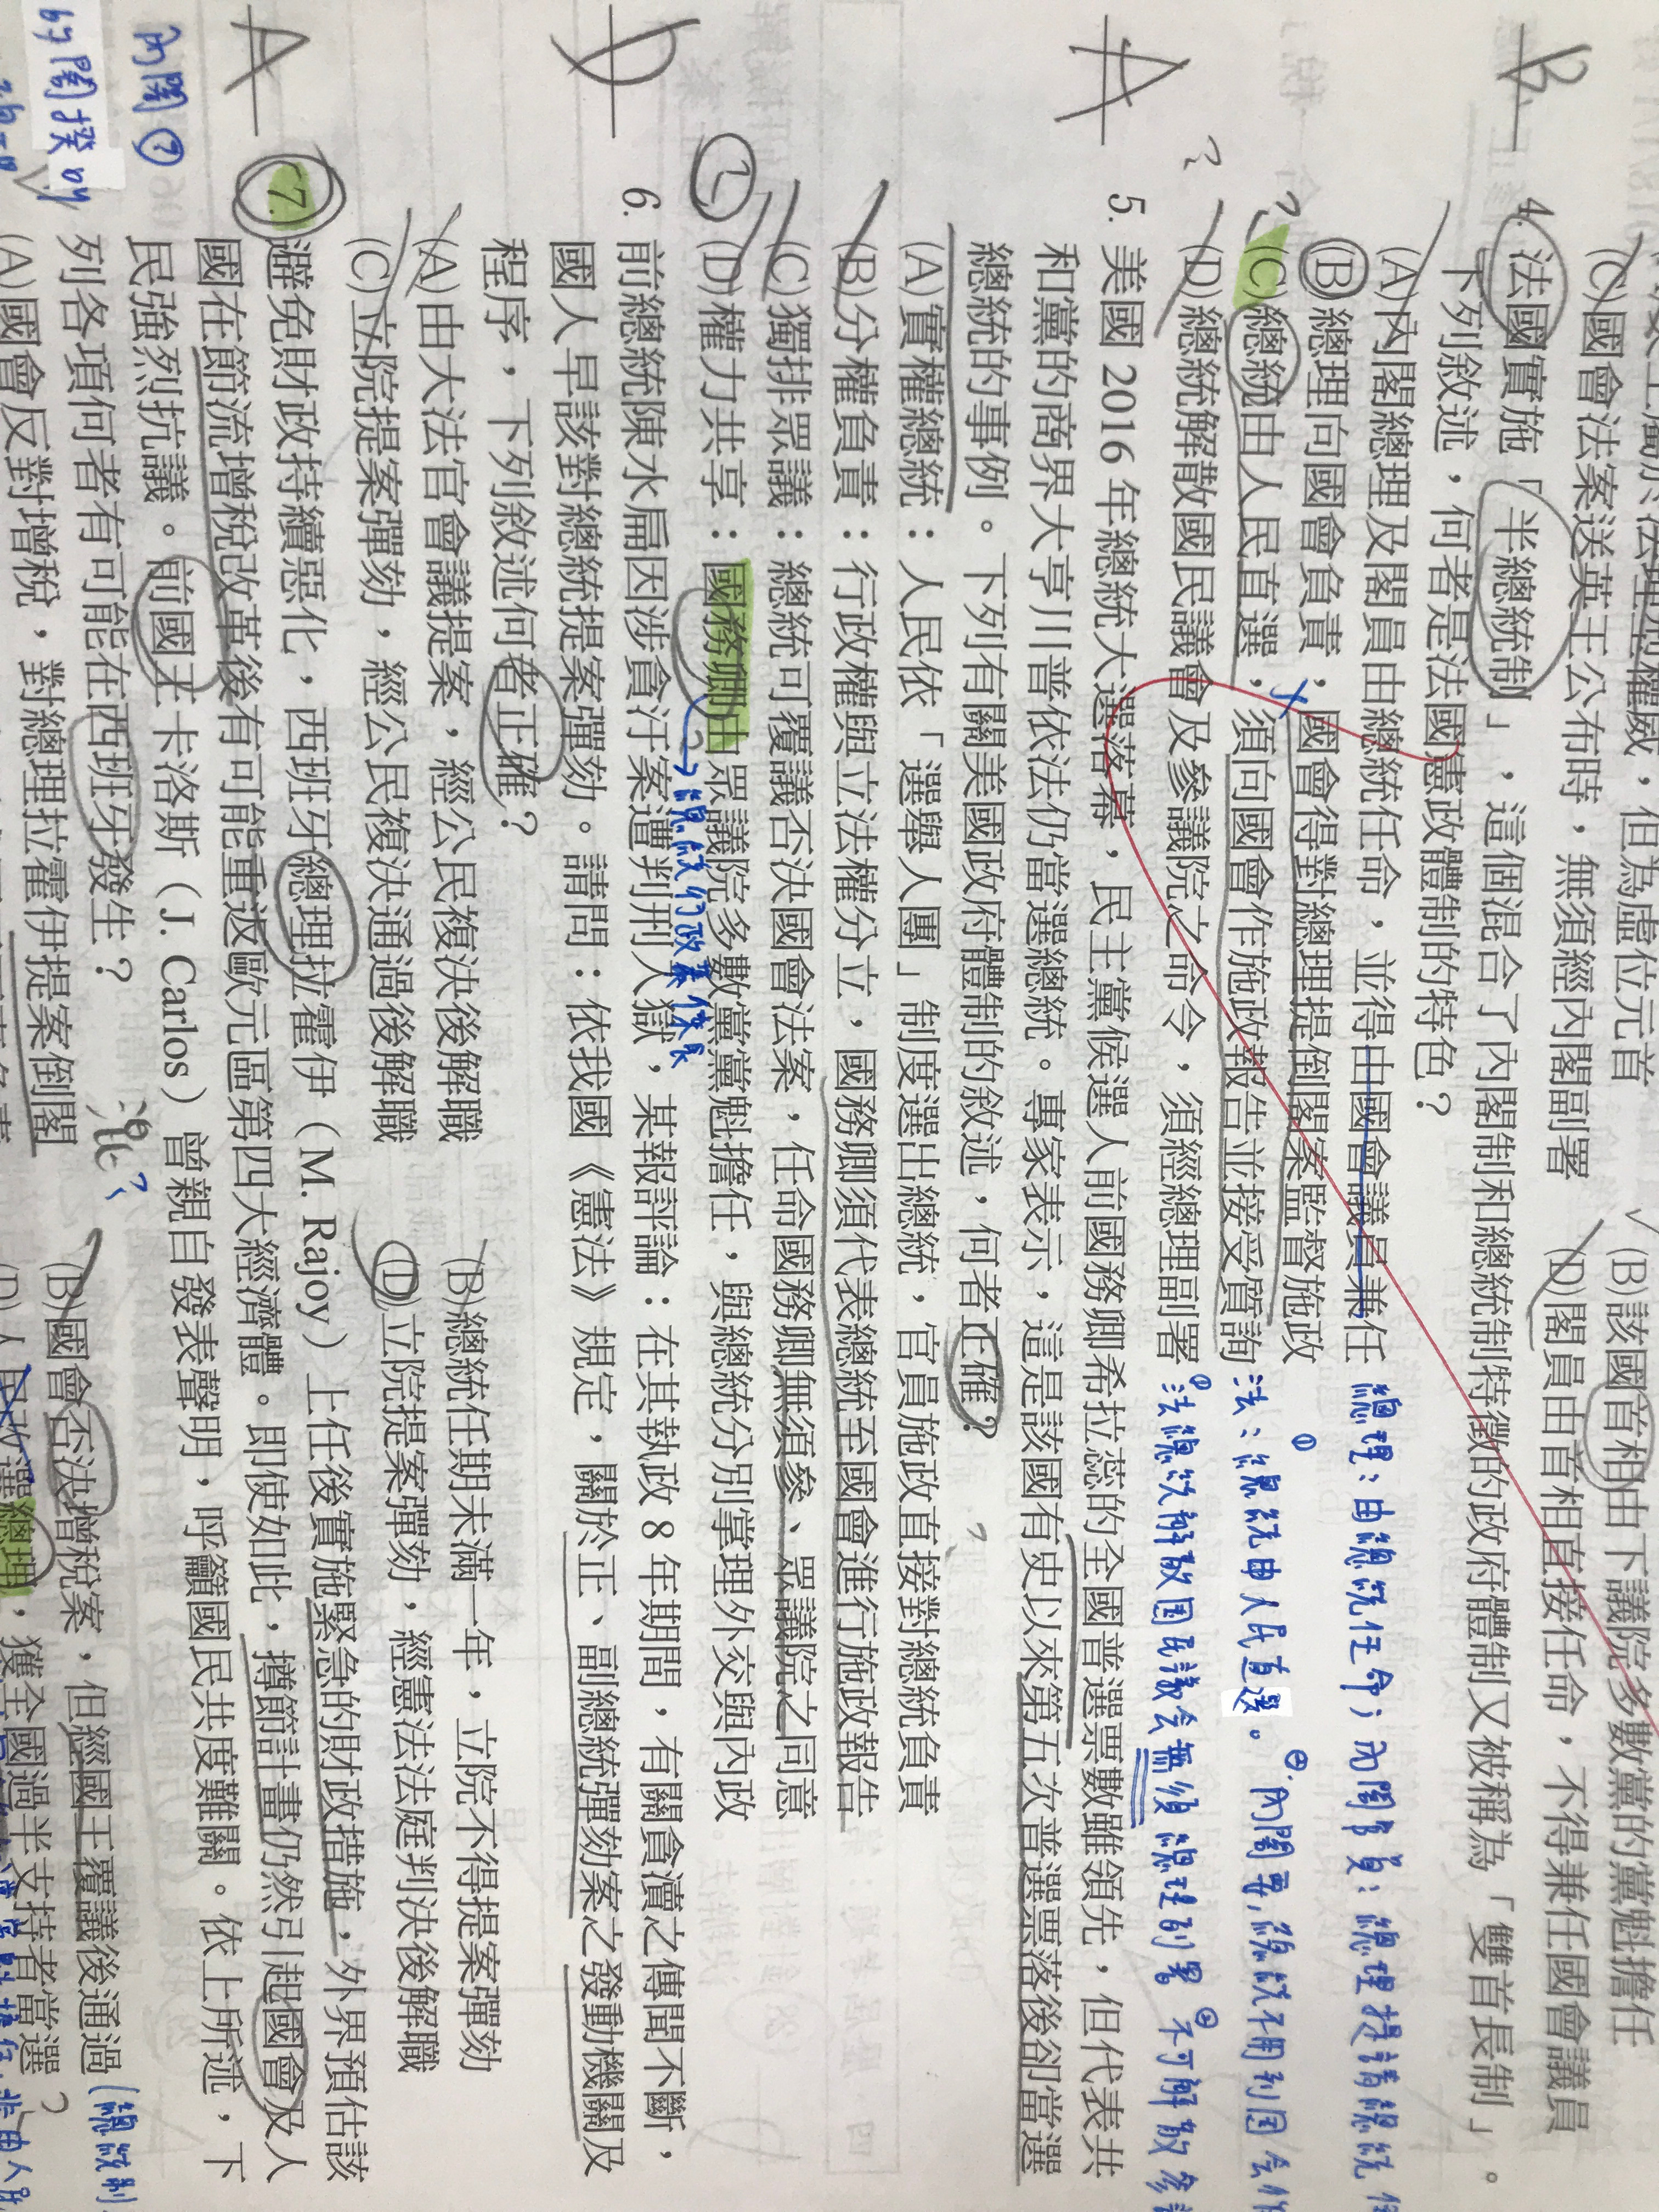 (C)國會法案送英王公布時，無須經內閣副署
✓(B)該國首相由下議院多數黨的黨魁擔任
(D)閣員由首相直接任命，不得兼任國會議員
B
4. 法國實施「半總統制」，這個混合了內閣制和總統制特徵的政府體制又被稱為「雙首長制」。
下列敘述，何者是法國憲政體制的特色？
(A)內閣總理及閣員由總統任命，並得由國會議員兼任
總理：由總統任命；內閣官員：總理提請總統
(B)總理向國會負責，國會得對總理提倒閣案監督施政
(C)總統由人民直選，須向國會作施政報告並接受質詢
法：①總統由人民直選。②內閣要，總統不用到國會
(D)總統解散國民議會及參議院之命令，須經總理副署
①法總統解散国民議会無須總理副署 ②不可解散參
A
5. 美國 2016 年總統大選落幕，民主黨候選人前國務卿希拉蕊的全國普選票數雖領先，但代表共
和黨的商界大亨川普依法仍當選總統。專家表示，這是該國有史以來第五次普選票落後卻當選
總統的事例。下列有關美國政府體制的敘述，何者正確？
(A)實權總統：人民依「選舉人團」制度選出總統，官員施政直接對總統負責
(B)分權負責：行政權與立法權分立，國務卿須代表總統至國會進行施政報告
(C)獨排眾議：總統可覆議否決國會法案，任命國務卿無須參、眾議院之同意
(D)權力共享：國務卿由眾議院多數黨黨魁擔任，與總統分別掌理外交與內政
D
6. 前總統陳水扁因涉貪汙案遭判刑入獄，某報評論：在其執政 8 年期間，有關貪瀆之傳聞不斷，
國人早該對總統提案彈劾。請問：依我國《憲法》規定，關於正、副總統彈劾案之發動機關及
程序，下列敘述何者正確？
(A)由大法官會議提案，經公民複決後解職
(B)總統任期未滿一年，立院不得提案彈劾
(C)立院提案彈劾，經公民複決通過後解職
(D)立院提案彈劾，經憲法法庭判決後解職
A
7. 避免財政持續惡化，西班牙總理拉霍伊（M. Rajoy）上任後實施緊急的財政措施，外界預估該
國在節流增稅改革後有可能重返歐元區第四大經濟體。即使如此，撙節計畫仍然引起國會及人
民強烈抗議。前國王卡洛斯（J. Carlos）曾親自發表聲明，呼籲國民共度難關。依上所述，下
列各項何者有可能在西班牙發生？
內閣
(A)國會反對增稅，對總理拉霍伊提案倒閣
(B)國會否決增稅案，但經國王覆議後通過
(總統制
(D)人民改選總理，獲全國過半支持者當選